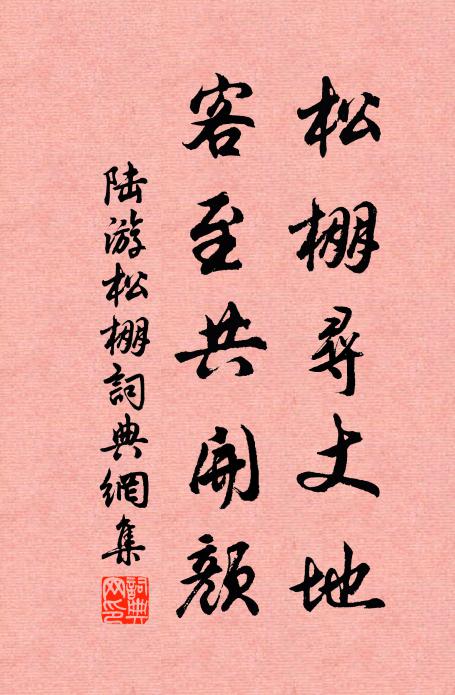 松棚尋丈地
客至共開顏
陸游松棚詞典網集
詞典網印